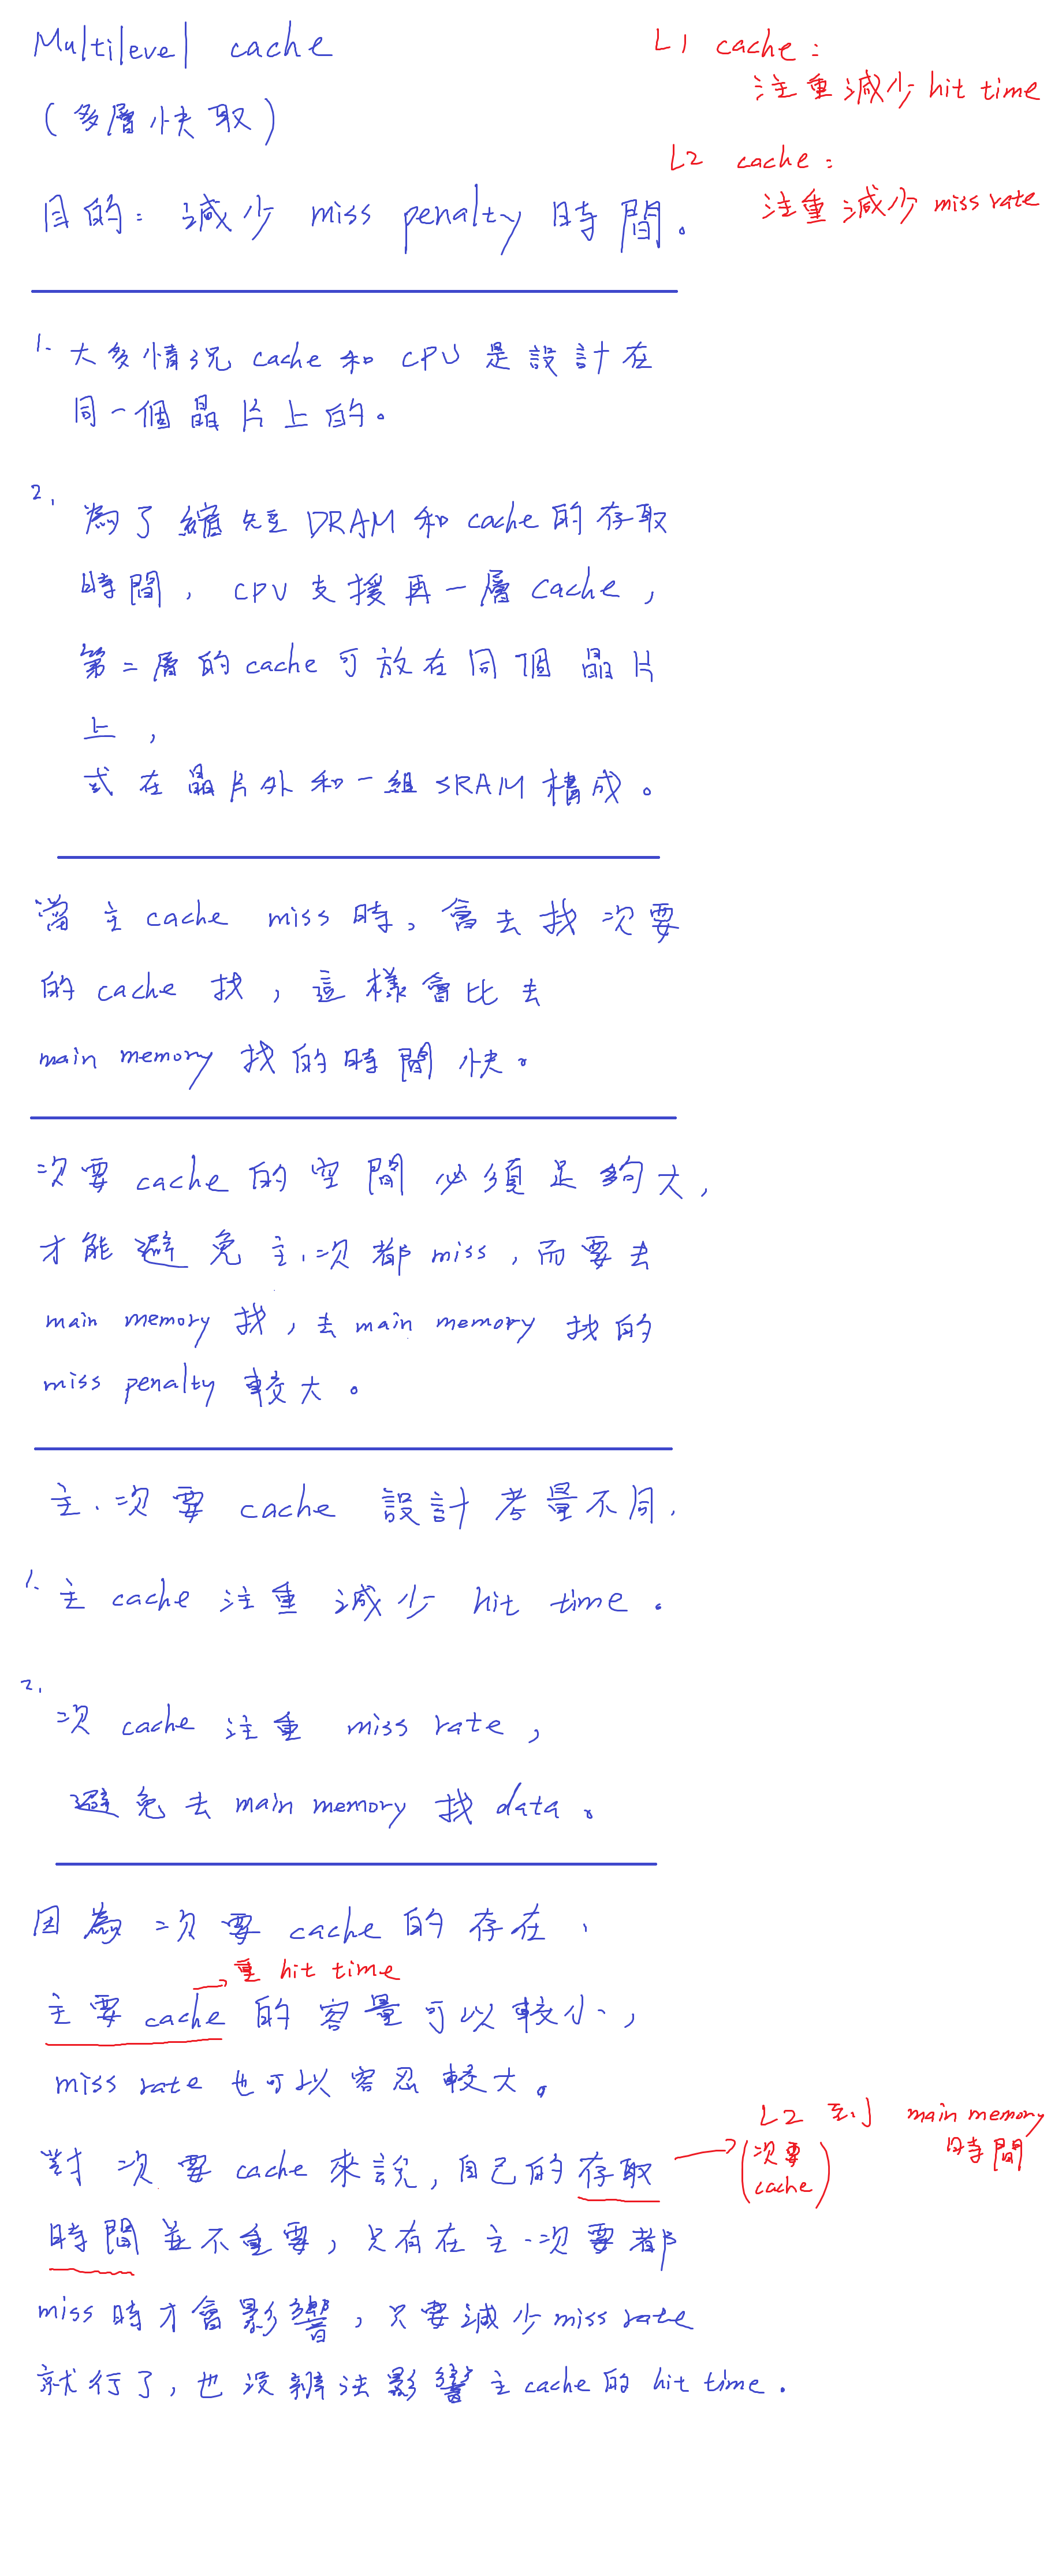 Multilevel cache
(多層快取)
目的: 減少 miss penalty 時間。
L1 cache:
注重減少 hit time
L2 cache:
注重減少 miss rate
1. 大多情況 cache 和 CPU 是設計在
同一個晶片上的。
2. 為了縮短 DRAM 和 cache 的存取
時間, CPU 支援再一層 cache,
第二層的 cache 可放在同個晶片
上,
或在晶片外和一組 SRAM 構成。
當主 cache miss 時, 會去找次要
的 cache 找, 這樣會比去
main memory 找的時間快。
次要 cache 的空間必須足夠大,
才能避免主、次都 miss, 而要去
main memory 找, 去 main memory 找的
miss penalty 較大。
主、次要 cache 設計考量不同.
1. 主 cache 注重減少 hit time。
2. 次 cache 注重 miss rate,
避免去 main memory 找 data。
因為次要 cache 的存在、
重 hit time
主要 cache 的容量可以較小,
miss rate 也可以容忍較大。
對次要 cache 來說, 自己的存取
L2 到 main memory
(次要 時間
cache)
時間並不重要, 只有在主、次要都
miss 時才會影響, 只要減少 miss rate
就行了, 也沒辦法影響主 cache 的 hit time.